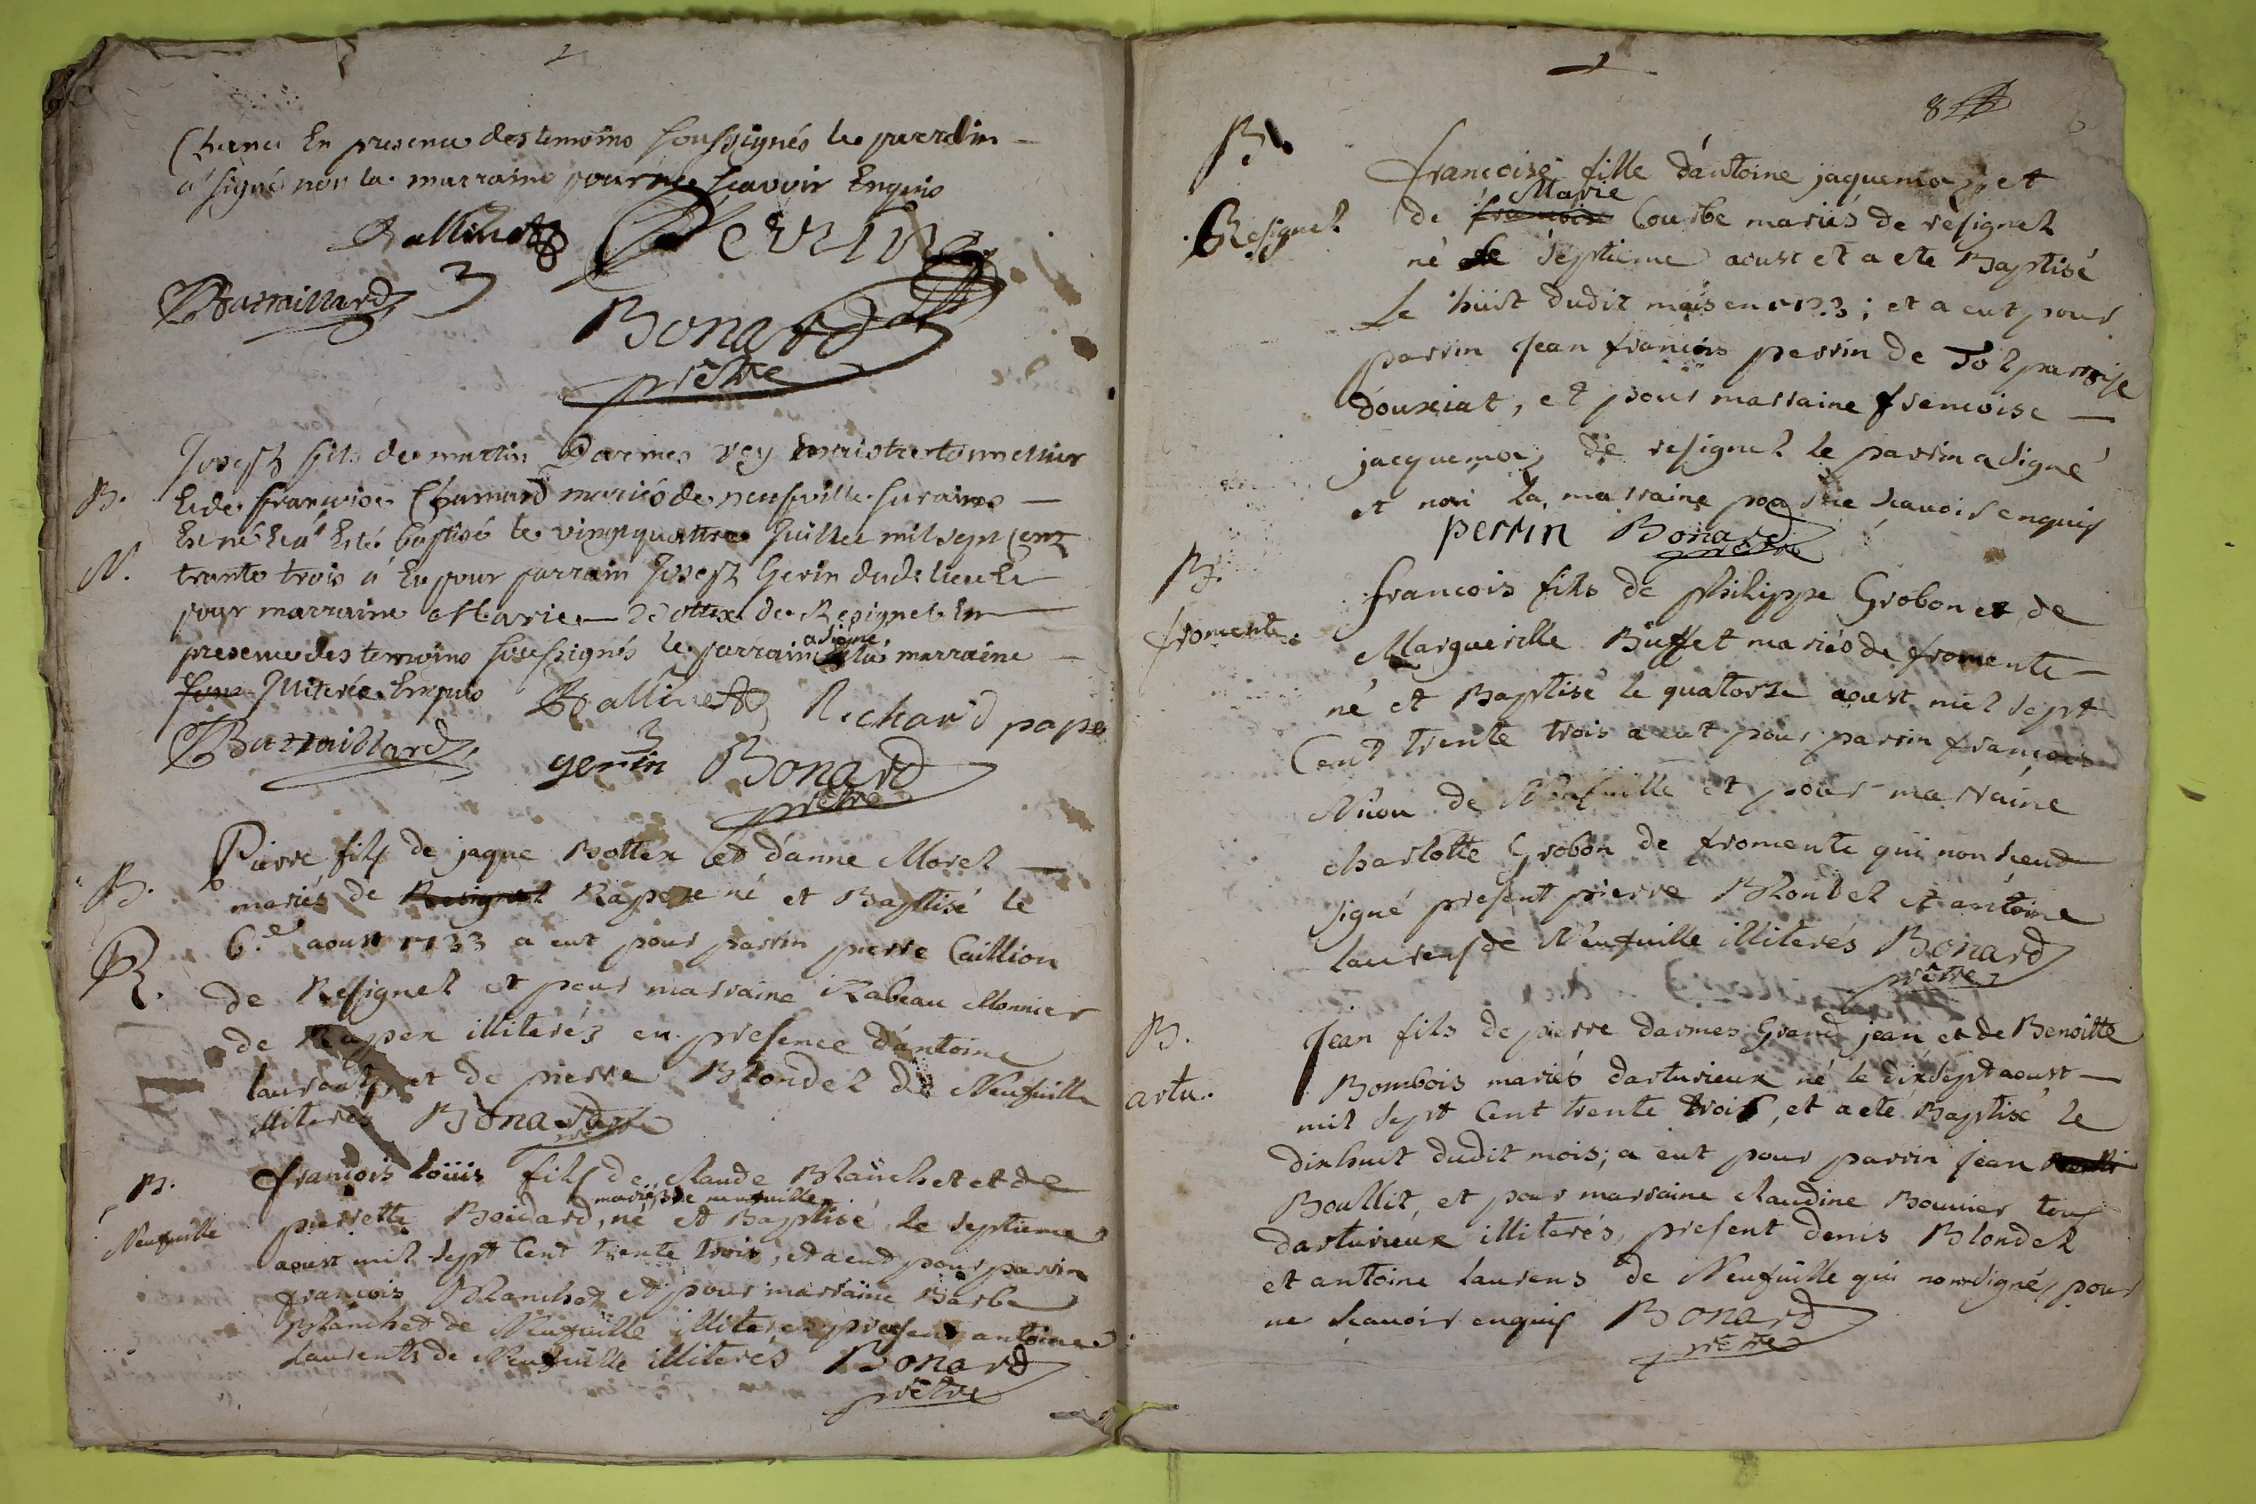 en presence des temoins soussignés le parrain
a signé non la marraine pour ne scavoir Enquis
Perrin
Battaillard
Bonard
prêtre
B.
N.
Joseph fils de martin Darmes rey maistre tonnellier
Et de françoise Chanard mariés de neufville sur ains
Est né Et a Esté baptisé le vingt quattre Juillet mil sept Cent
trante trois a Eu pour parrain Joseph Gerin dudt lieu Et
pour marraine Marie Bottex de Resignel En
presence des temoins soussignés le parrain a signé la marraine
Illiterée Enquis
Richard pape
Battaillard
gerin Bonard
prêtre
B.
R.
Pierre fils de jaque Bottex et d'anne Morel
mariés de Resignel Rapex né et Baptisé le
6.e aoust 1733 a eut pour parrin pierre Caillion
de Resignel et pour marraine Isabeau Monnier
de Rapex illiterés en presence d'antoine
laurent et de pierre Blondel de Neufuille
illiterés Bonard
prêtre
B.
Neufuille
françois loüis fils de claude Blanchet et de
mariés de neufuille
pierrette Boidard, né et Baptisé le septieme
aoust mil sept Cent trente trois, et a eut pour parrin
françois Blanchet et pour marraine Barbe
Blanchet de Neufuille illiterés present antoine
laurents de Neufuille illiterés Bonard
prêtre
8
B.
Resignel
françoise fille d'antoine jaquemoz et
Marie
de françoise Courbe mariés de resignel
né le septieme aoust et a ete Baptisé
le huit dudit mois en 1733; et a eut pour
parrin jean françois perrin de Tol parroisse
douxiat, et pour marraine francoise
jacquemoz de resignel le parrin a signé
et non la marraine pour ne scauoir enquis
perrin Bonard
prêtre
B.
fromente.
francois fils de philippe Grobon et de
Marguerille Buffet mariés de fromente
né et Baptisé le quatorze aoust mil sept
Cent trente trois a eut pour parrin françois
Nicou de Neufuille et pour marraine
charlotte Grobon de fromente qui non
signé present pierre Blondel et antoine
laurens de Neufuille illiterés Bonard
prêtre
B.
artu.
jean fils de pierre darmes Grand jean et de Benoitte
Bombois mariés darturieux né le dixsept aoust
mil sept Cent trente trois, et a eté Baptisé le
dixhuit dudit mois; a eut pour parrin jean
Boullit, et pour marraine claudine Bouuier tous
darturieux illiterés, present denis Blondel
et antoine laurens de Neufuille qui non signé, pour
ne scauoir enquis Bonard
prêtre